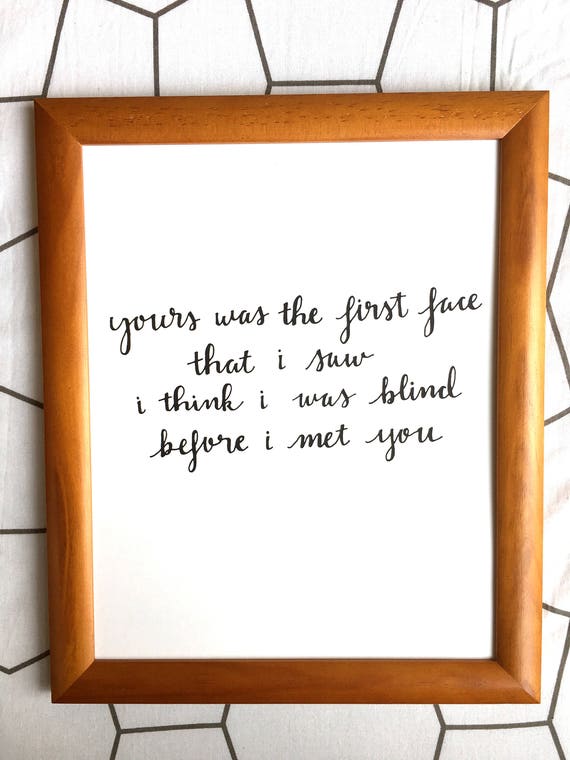 yours was the first face
that i saw
i think i was blind
before i met you